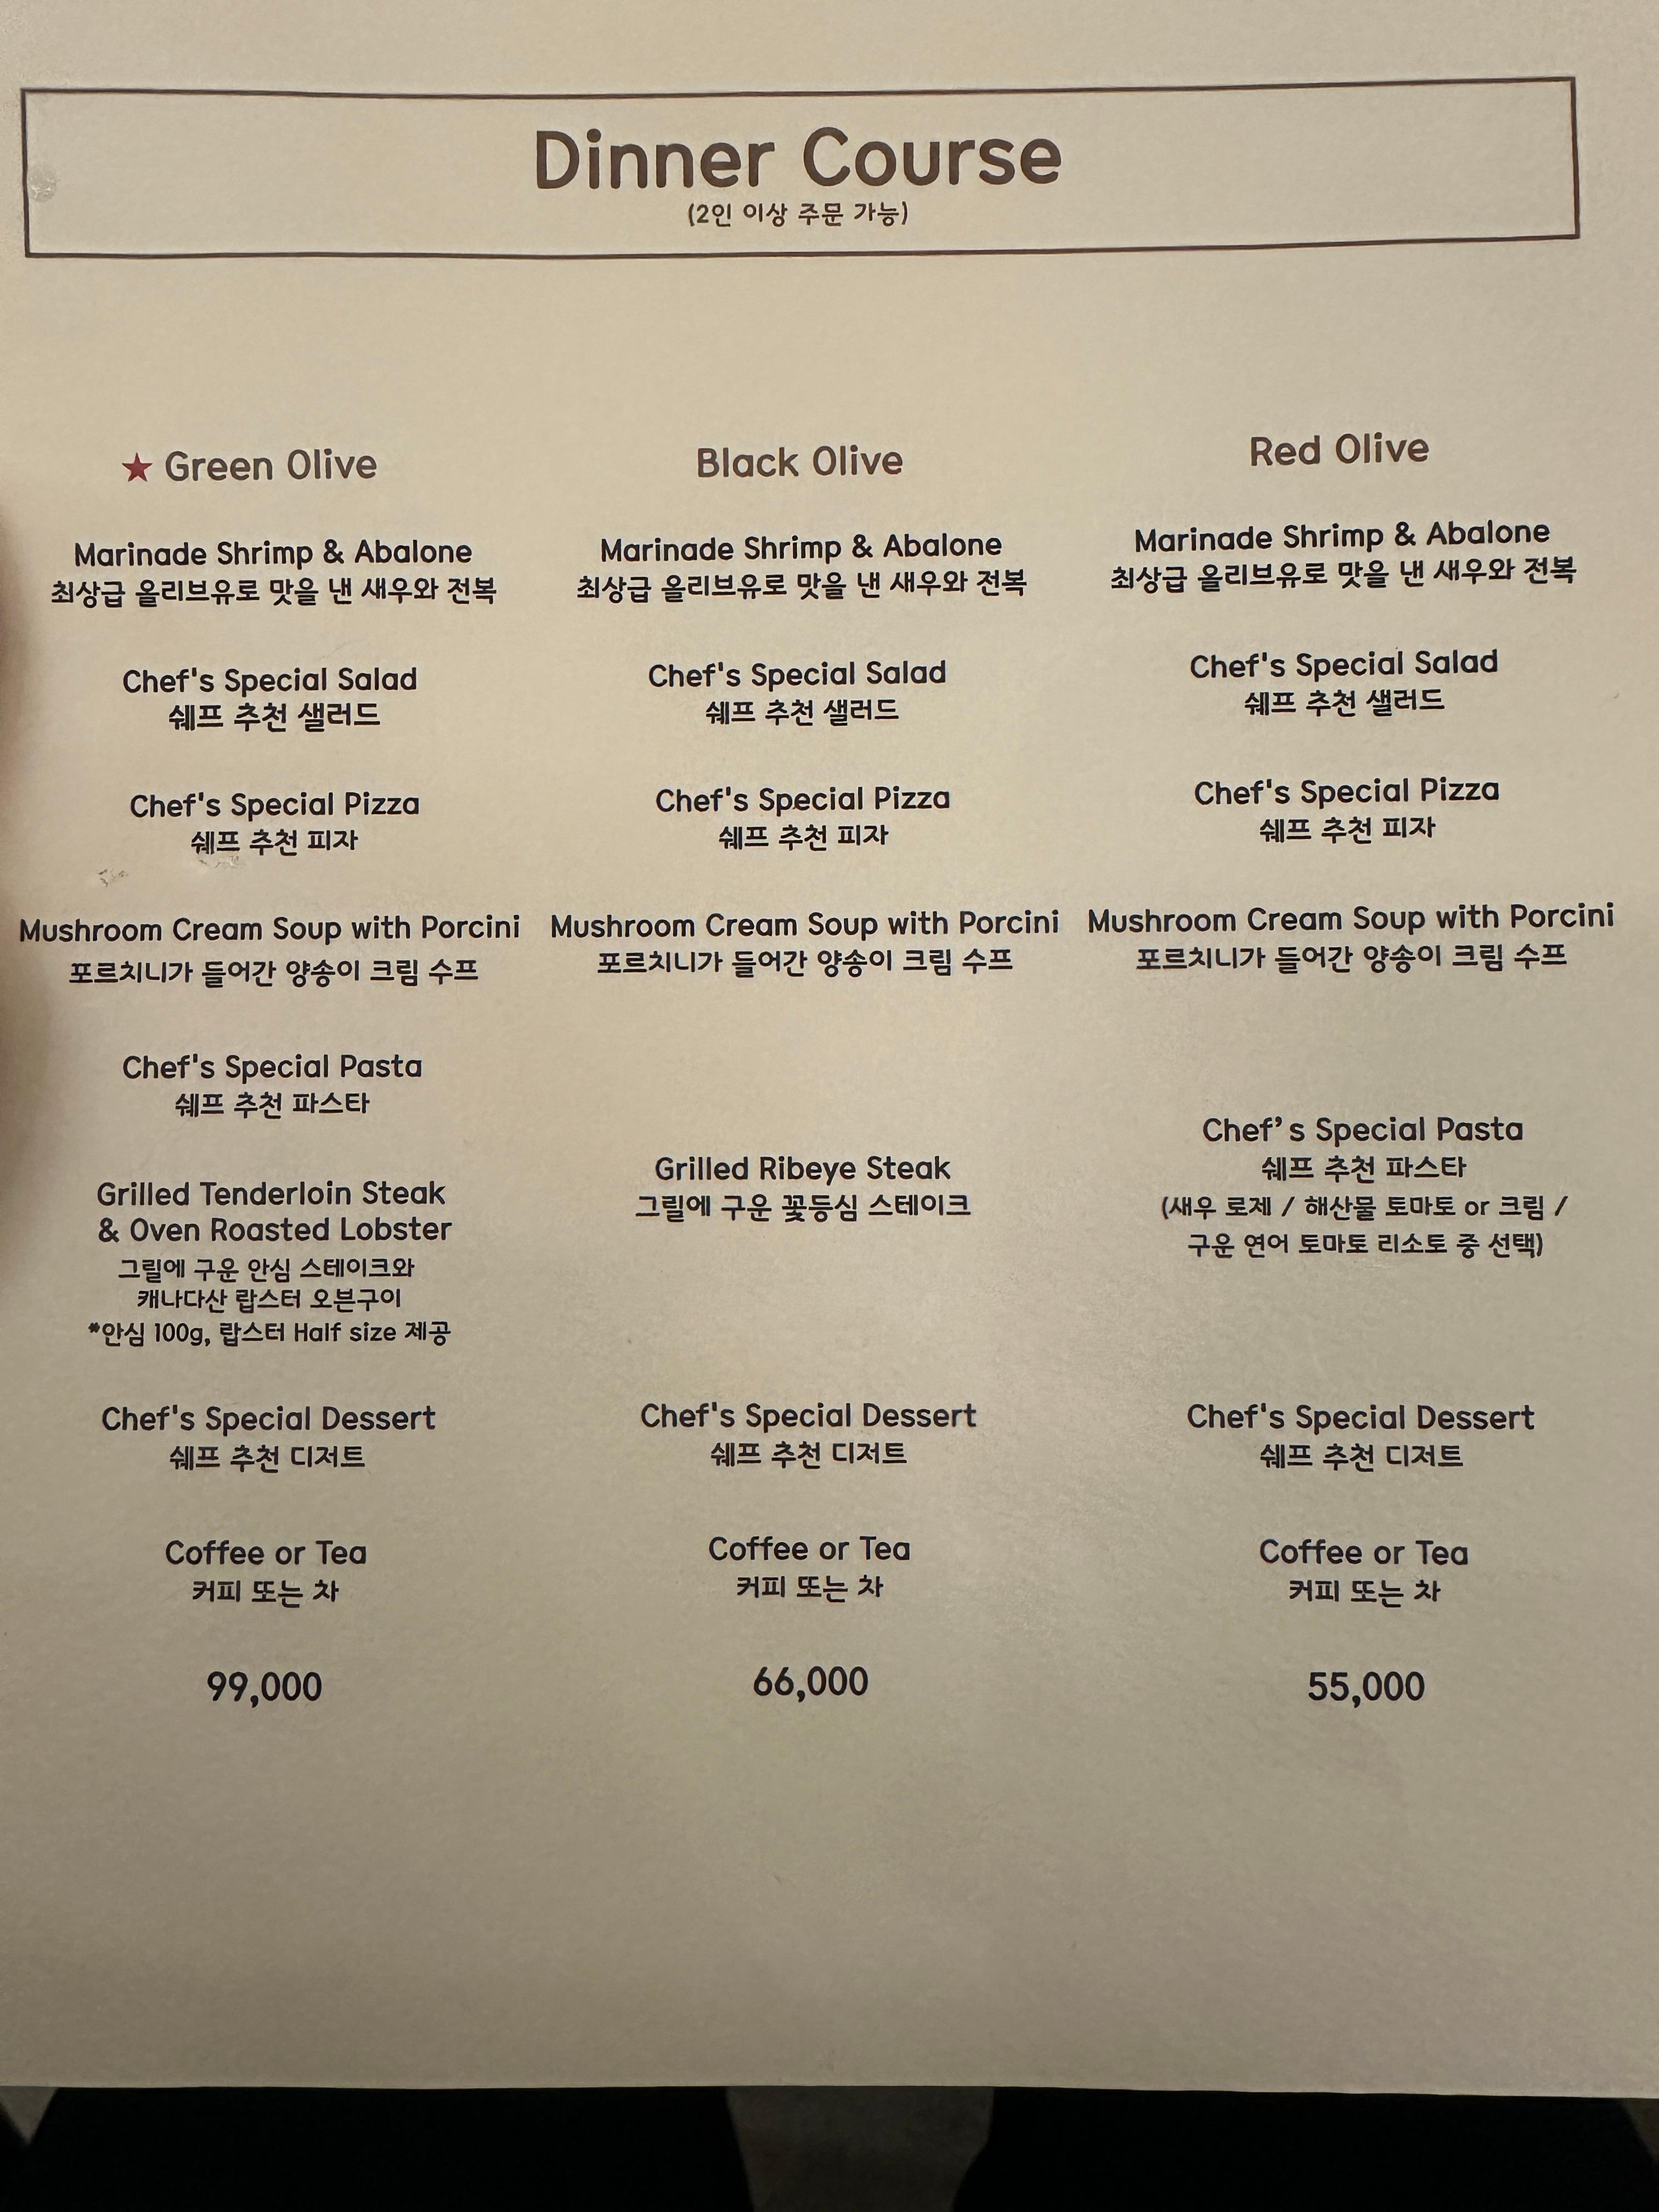 Dinner Course
(2인 이상 주문 가능)
★ Green Olive
Marinade Shrimp & Abalone
최상급 올리브유로 맛을 낸 새우와 전복
Chef's Special Salad
쉐프 추천 샐러드
Chef's Special Pizza
쉐프 추천 피자
Mushroom Cream Soup with Porcini
포르치니가 들어간 양송이 크림 수프
Chef's Special Pasta
쉐프 추천 파스타
Grilled Tenderloin Steak
& Oven Roasted Lobster
그릴에 구운 안심 스테이크와
캐나다산 랍스터 오븐구이
*안심 100g, 랍스터 Half size 제공
Chef's Special Dessert
쉐프 추천 디저트
Coffee or Tea
커피 또는 차
99,000
Black Olive
Marinade Shrimp & Abalone
최상급 올리브유로 맛을 낸 새우와 전복
Chef's Special Salad
쉐프 추천 샐러드
Chef's Special Pizza
쉐프 추천 피자
Mushroom Cream Soup with Porcini
포르치니가 들어간 양송이 크림 수프
Grilled Ribeye Steak
그릴에 구운 꽃등심 스테이크
Chef's Special Dessert
쉐프 추천 디저트
Coffee or Tea
커피 또는 차
66,000
Red Olive
Marinade Shrimp & Abalone
최상급 올리브유로 맛을 낸 새우와 전복
Chef's Special Salad
쉐프 추천 샐러드
Chef's Special Pizza
쉐프 추천 피자
Mushroom Cream Soup with Porcini
포르치니가 들어간 양송이 크림 수프
Chef’s Special Pasta
쉐프 추천 파스타
(새우 로제 / 해산물 토마토 or 크림 /
구운 연어 토마토 리소토 중 선택)
Chef's Special Dessert
쉐프 추천 디저트
Coffee or Tea
커피 또는 차
55,000